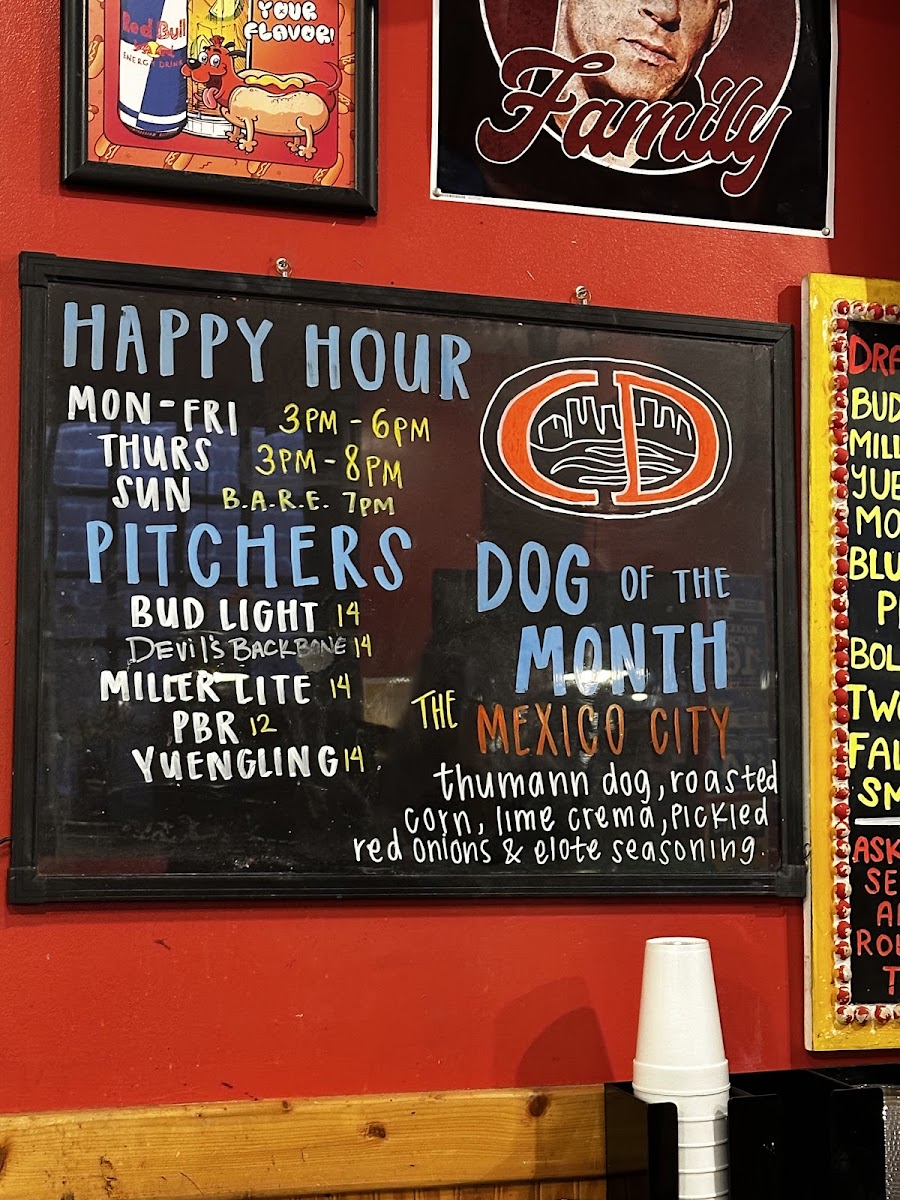 Red Bull
ENERGY DRINK
YOUR
FLAVOR!
Family
HAPPY HOUR
MON-FRI 3PM-6PM
THURS 3PM-8PM
SUN B.A.R.E. 7PM
PITCHERS
BUD LIGHT 14
DEVil's BACKBONE 14
MILLER LITE 14
PBR 12
YUENGLING 14
CD
DOG OF THE
MONTH
THE MEXICO CITY
thumann dog, roasted
corn, lime crema, pickled
red onions & elote seasoning.
DRA
BUD
MILL
YUE
MO
BLU
P
BOL
TWO
FAL
SM
ASK
SE
A
RO
T